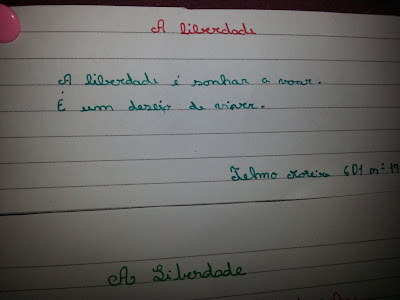 A liberdade
A liberdade é sonhar a voar.
É um desejo de viver.
Telmo Moreira 6D1 nº 19
A Liberdade